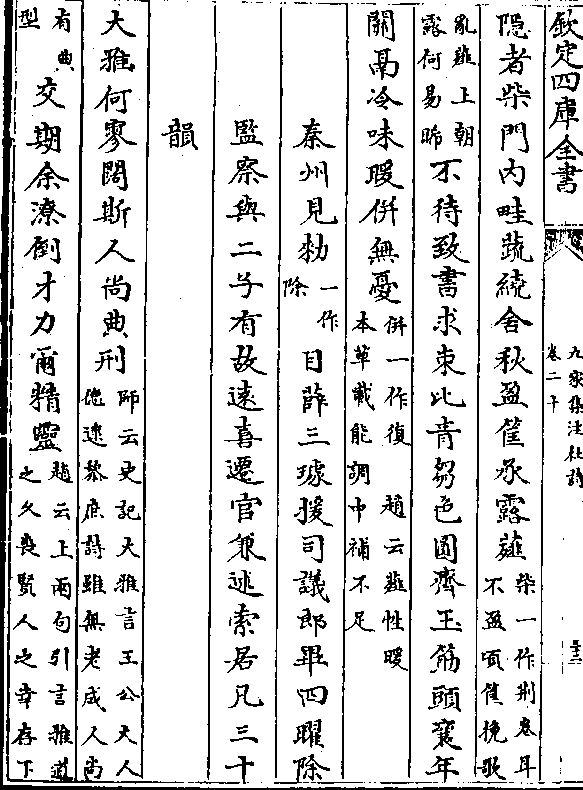 欽定四庫全書 九家集注杜詩 卷二十
隱者柴門内畦蔬繞舍秋盈筐承露薤柴一作荆卷耳不盈頃筐挽歌
亂薤上朝露何易晞不待致書求束比青芻色圓齊玉筯頭衰年
關鬲冷味暖併無憂併一作復 趙云薤性暖本草載能調中補不足
秦州見勑一作除目薛三璩援司議郎畢四曜除
監察與二子有故遠喜遷官兼述索居凡三十
韻
大雅何寥闊斯人尚典刑師云史記大雅言王公大人德逮黎庶詩雖無老成人尚
有典型交期余潦倒才力爾精靈趙云上兩句引言雅道之久喪賢人之幸存下